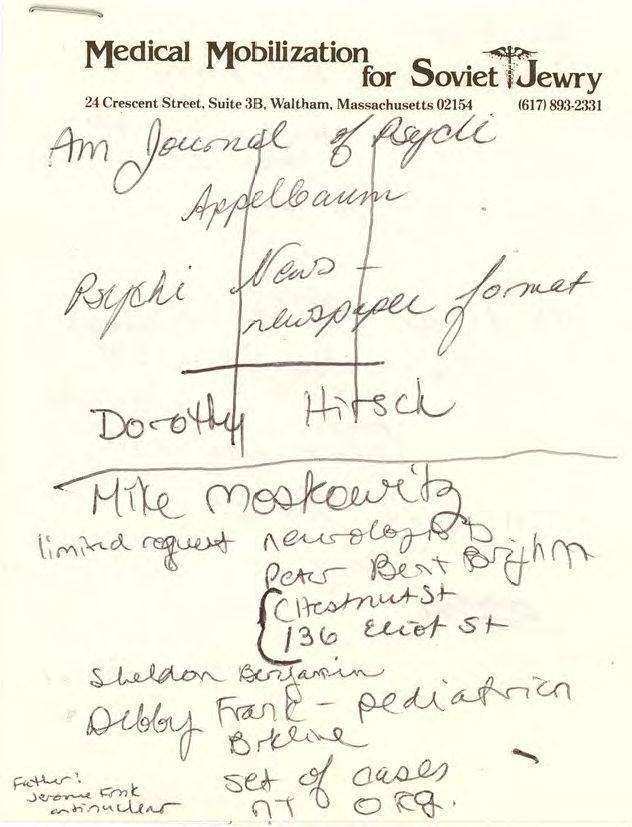 Medical Mobilization
for Soviet Jewry
24 Crescent Street, Suite 3B, Waltham, Massachusetts 02154 (617) 893-2331
Am Journal of Psychi
Appelbaum
Psychi News -
newspaper format
Dorothy Hirsch
Mike Moskowitz
limited request neurologist
Peter Bent Brighm
Chestnut St
136 Eliot St
Sheldon Benjamin
Debby Frank - pediatrician
Brkline
set of cases
NT ORG.
Father:
Jerome Frank
antinuclear